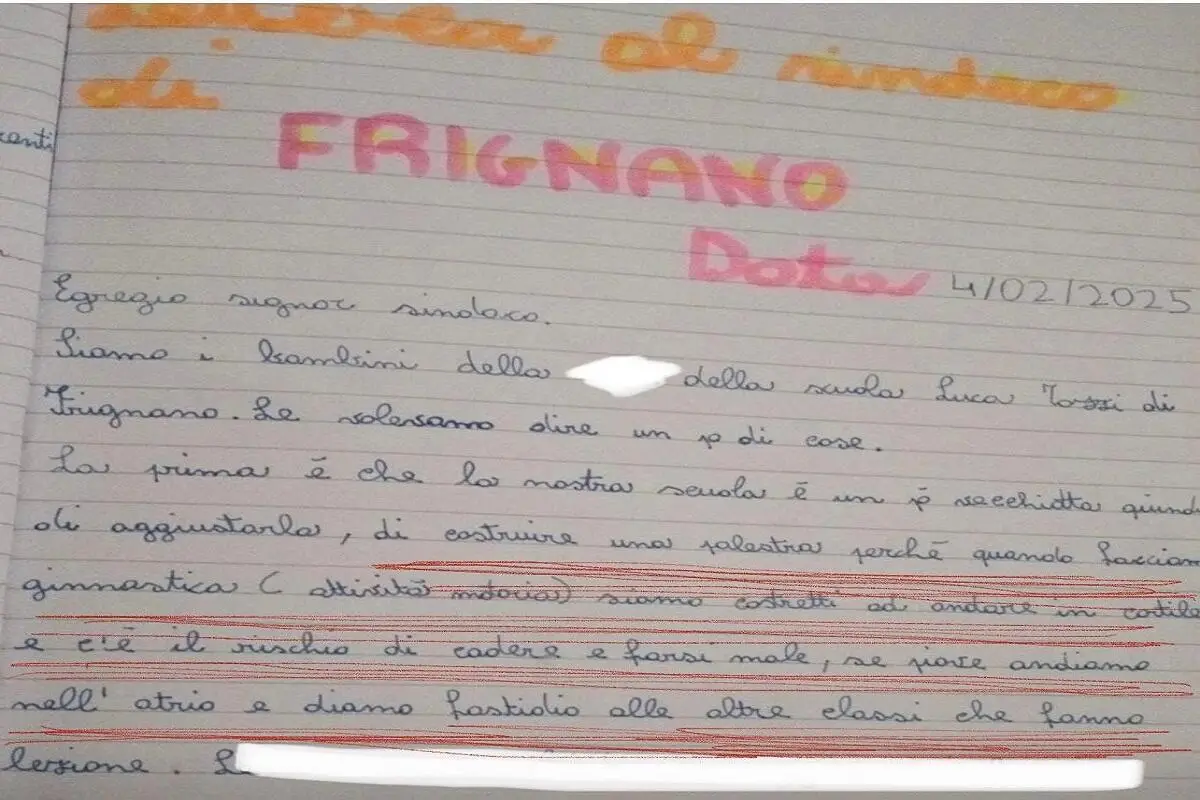 al sindaco
di
FRIGNANO
Data 4/02/2025
Egregio signor sindaco.
Siamo i bambini della della scuola Luca Tozzi di
Frignano. Le volevamo dire un pò di cose.
La prima è che la nostra scuola è un pò vecchiotta quindi
di aggiustarla, di costruire una palestra perchè quando facciam
ginnastica ( attività motoria) siamo costretti ad andare in cortile
e c'è il rischio di cadere e farsi male, se piove andiamo
nell' atrio e diamo fastidio alle altre classi che fanno
lezione.